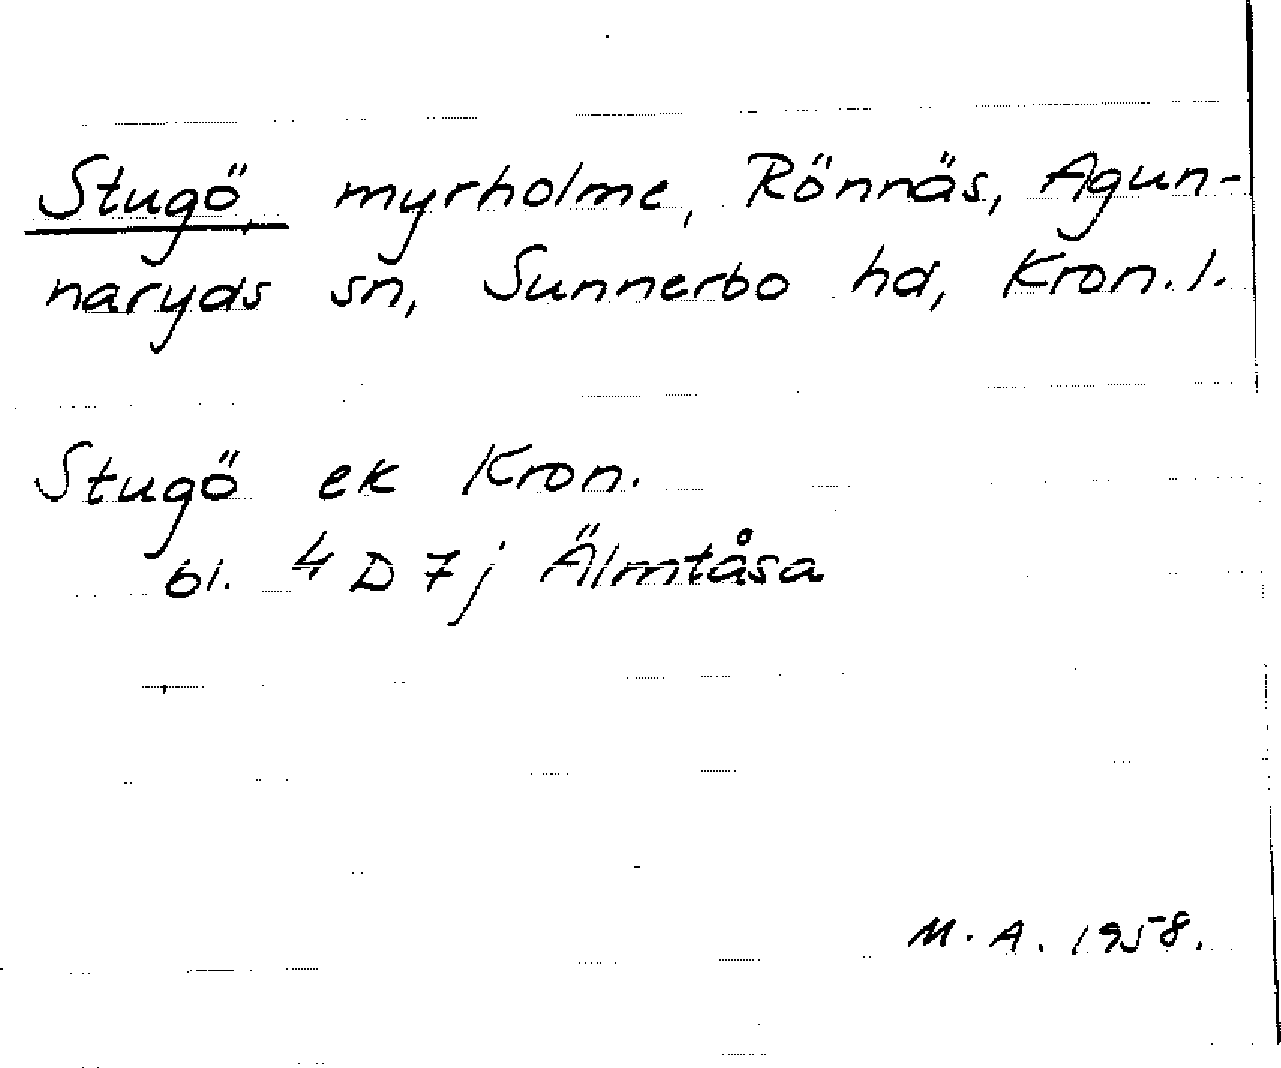 Stugö, myrholme, Rönnäs, Agun-
naryds sn, Sunnerbo hd, Kron.l.
Stugö ek Kron.
bl. 4 D 7j Älmtåsa
M.A. 1958.